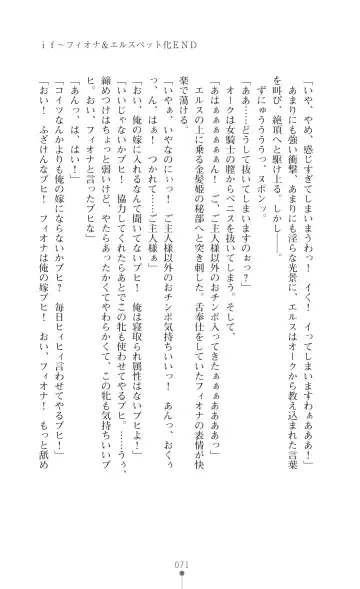 ｉｆ～フィオナ＆エルスペット化ＥＮＤ
「いや、やめ、感じすぎてしまいまうわっ！　イく！　イってしまいますわぁあああ！」
あまりにも強い衝撃、あまりにも淫らな光景に、エルスはオークから教え込まれた言葉
を叫び、絶頂へと駆け上る。しかし――。
ずにゅうううううっ、ヌポンッ。
「ああっ……どうして抜いてしまいますのぉっ？」
オークは女騎士の膣からペニスを抜いてしまう。そして、
「あはぁぁぁぁぁぁん！　ご、ご主人様以外のおチンポ入ってきたぁぁぁああああっ」
エルスの上に乗る金髪姫の秘部へと突き刺した。舌奉仕をしていたフィオナの表情が快
楽で蕩ける。
「いやぁ、いやなのにぃっ！　ご主人様以外のおチンポ気持ちいいっ！　あんっ、おくぅ
っ、ん、はぁ！　つかれて……ご主人様ぁ」
「おい、俺の嫁に入れるなんて聞いてないブヒ！　俺は寝取られ属性はないブヒよ！」
「いいじゃないかブヒ！　協力してくれたらあとでこの牝も使わせてやるブヒ。……うぅ、
締めつけはちょっと弱いけど、やたらあったかくてやわらかくて、この牝も気持ちいいブ
ヒ。おい、フィオナと言ったブヒな」
「あんっ、は、はい！」
「コイツなんかよりも俺の嫁にならないかブヒ？　毎日ヒィヒィ言わせてやるブヒ！」
「おい！　ふざけんなブヒ！　フィオナは俺の嫁ブヒ！　おい、フィオナ！　もっと舐め
071